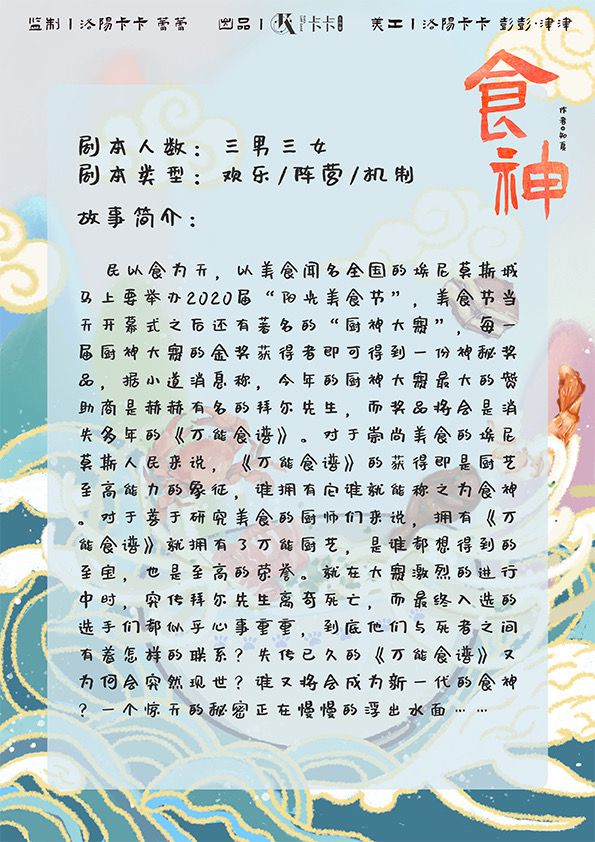 监制 | 洛阳卡卡 蕾蕾 出品 | 卡卡 美工 | 洛阳卡卡 彭彭·津津
食神
作者:知夏
剧本人数：三男三女
剧本类型：欢乐/阵营/机制
故事简介：
民以食为天，以美食闻名全国的埃尼莫斯城
马上要举办2020届“阳光美食节”，美食节当
天开幕式之后还有著名的“厨神大赛”，每一
届厨神大赛的金奖获得者即可得到一份神秘奖
品，据小道消息称，今年的厨神大赛最大的赞
助商是赫赫有名的拜尔先生，而奖品将会是消
失多年的《万能食谱》。对于崇尚美食的埃尼
莫斯人民来说，《万能食谱》的获得即是厨艺
至高能力的象征，谁拥有它谁就能称之为食神
。对于善于研究美食的厨师们来说，拥有《万
能食谱》就拥有了万能厨艺，是谁都想得到的
至宝，也是至高的荣誉。就在大赛激烈的进行
中时，突传拜尔先生离奇死亡，而最终入选的
选手们都似乎心事重重，到底他们与死者之间
有着怎样的联系？失传已久的《万能食谱》又
为何会突然现世？谁又将会成为新一代的食神
？一个惊天的秘密正在慢慢的浮出水面……